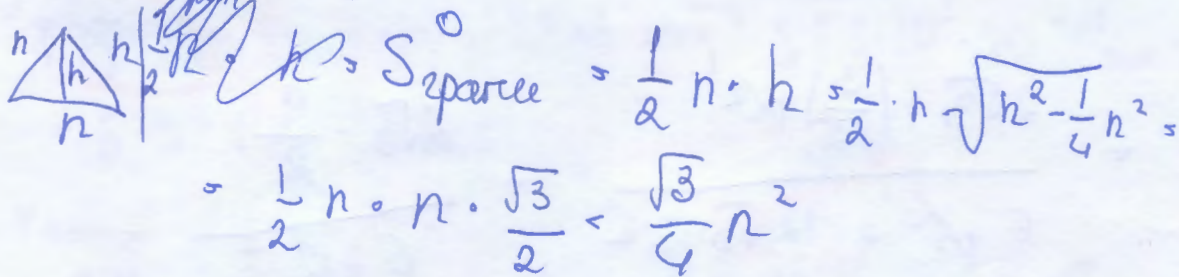 n n h n
S⁰ грани = 1/2 n · h = 1/2 · n · √(n² - 1/4 n²) =
= 1/2 n · n · √3/2 = √3/4 n²